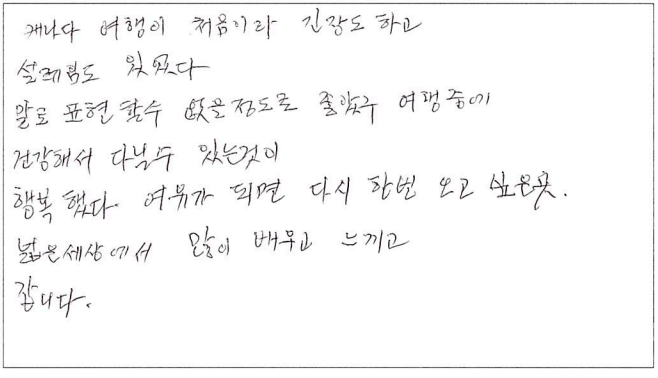 캐나다 여행이 처음이라 긴장도 하고
설레힘도 있었다
말로 표현 할수 없을정도로 좋았구 여행중에
건강해서 다닐수 있는것이
행복 했다. 여유가 되면 다시 한번 오고 싶은곳.
넓은세상에서 많이 배우고 느끼고
갑니다.